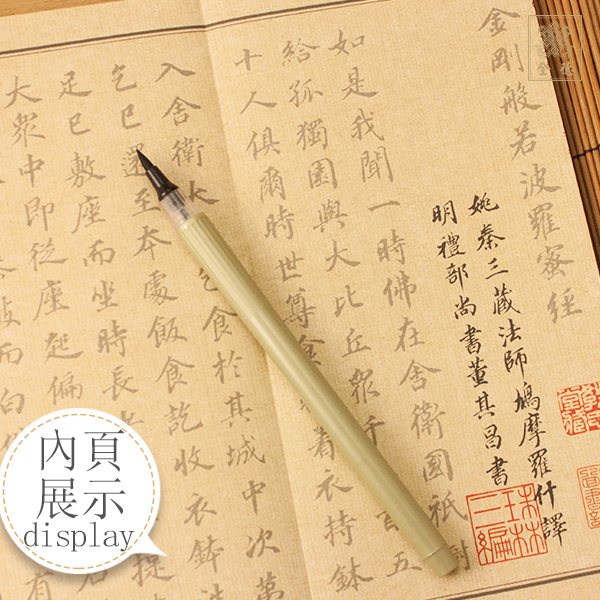 金剛般若波羅蜜經
姚秦三藏法師鳩摩羅什譯
明禮部尚書董其昌書
如是我聞一時佛在舍衛國祇
給孤獨園與大比丘眾千 百五
十人俱爾時世尊食 著衣持鉢
入舍衛大 乞食於其城中次
乞已還至本處飯食訖收衣鉢
足已敷座而坐時長
大眾中即從座起偏
內頁
展示
display